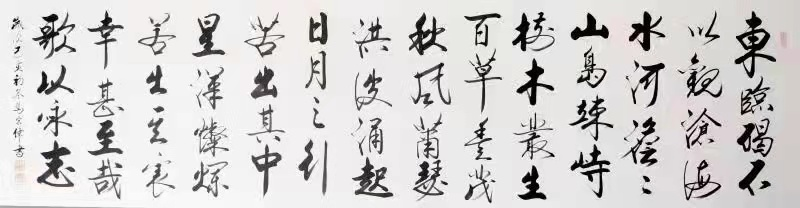 東臨碣石
以觀滄海
水河澹〻
山島竦峙
樹木叢生
百草豊茂
秋風蕭瑟
洪波涌起
日月之行
若出其中
星漢燦爛
若出其裏
幸甚至哉
歌以咏志
歲次己亥初冬書